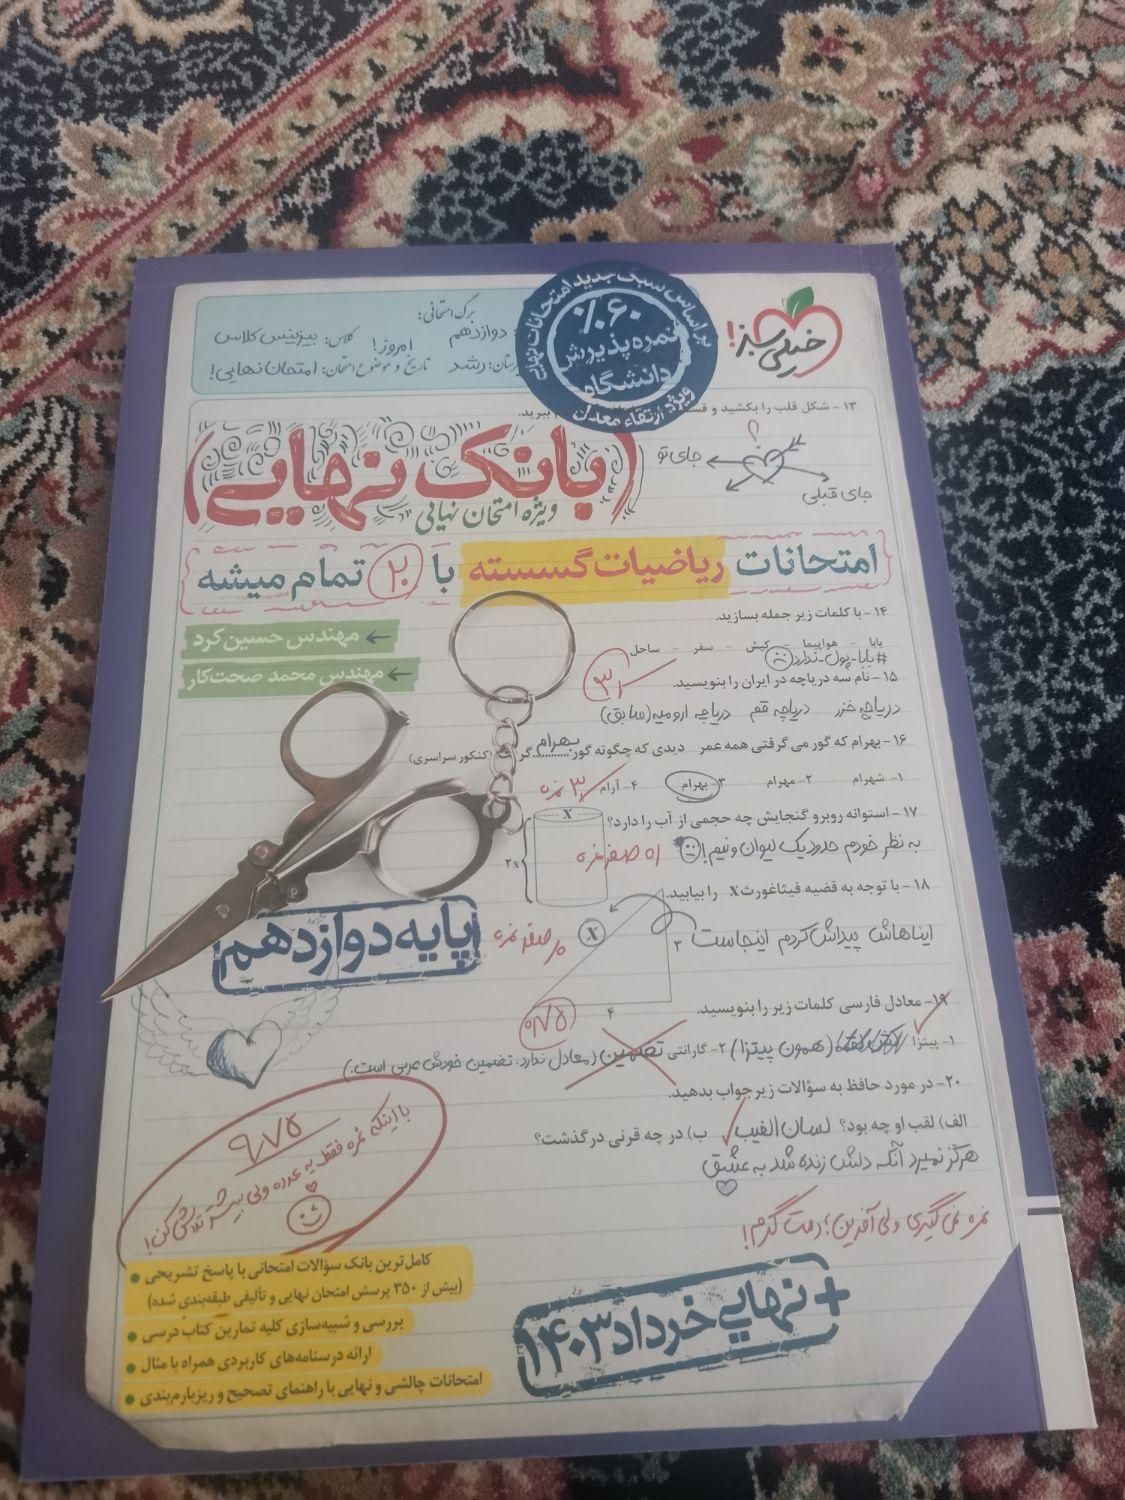 خیلی سبز!
براساس سبک جدید امتحانات نهایی
٪۶۰
نمره پذیرش
دانشگاه
ویژه ارتقاء معدل
برگ امتحانی:
دوازدهم
امروز! کلاس: بیزینس کلاس
رشد تاریخ و موضوع امتحان: امتحان نهایی!
۱۳- شکل قلب را بکشید و ببرید.
جای تو
جای قبلی
(بانک نهایی)
ویژه امتحان نهایی
امتحانات ریاضیات گسسته با ۲۰ تمام میشه
مهندس حسین کرد
مهندس محمد صحت‌کار
۱۴- با کلمات زیر جمله بسازید.
بابا - هواپیما - کیش - سفر - ساحل
#بابا-پول-ندارد
۱۵- نام سه دریاچه در ایران را بنویسید.
دریاچه خزر دریاچه قم دریاچه ارومیه (سابق)
۱۶- بهرام که گور می گرفتی همه عمر دیدی که چگونه گور بهرام گرفت (کنکور سراسری)
۱- شهرام ۲- مهرام ۳- بهرام ۴- آرام
۱۷- استوانه روبرو گنجایش چه حجمی از آب را دارد؟
X
۲x
به نظر خودم حدود یک لیوان و نیم!
۱۸- با توجه به قضیه فیثاغورث X را بیابید.
ایناهاش پیداش کردم اینجاست
X
۳
۴
صفر نمره
پایه دوازدهم
۱۹- معادل فارسی کلمات زیر را بنویسید.
۱- پیتزا (همون پیتزا) ۲- گارانتی تضمین (معادل ندارد، تضمین خودش عربی است.)
۲۰- در مورد حافظ به سؤالات زیر جواب بدهید.
الف) لقب او چه بود؟ لسان الغیب ب) در چه قرنی درگذشت؟
هرگز نمیرد آنکه دلش زنده شد به عشق
نمره نمی گیری ولی آفرین؛ دمت گرم!
۹٫۷۵
با اینکه نمره فقط یه عدده ولی بیشتر تلاش کن!
کامل‌ترین بانک سؤالات امتحانی با پاسخ تشریحی
(بیش از ۳۵۰ پرسش امتحان نهایی و تألیفی طبقه‌بندی شده)
بررسی و شبیه‌سازی کلیه تمارین کتاب درسی
ارائه درسنامه‌های کاربردی همراه با مثال
امتحانات چالشی و نهایی با راهنمای تصحیح و ریزبارم‌بندی
+ نهایی خرداد ۱۴۰۳